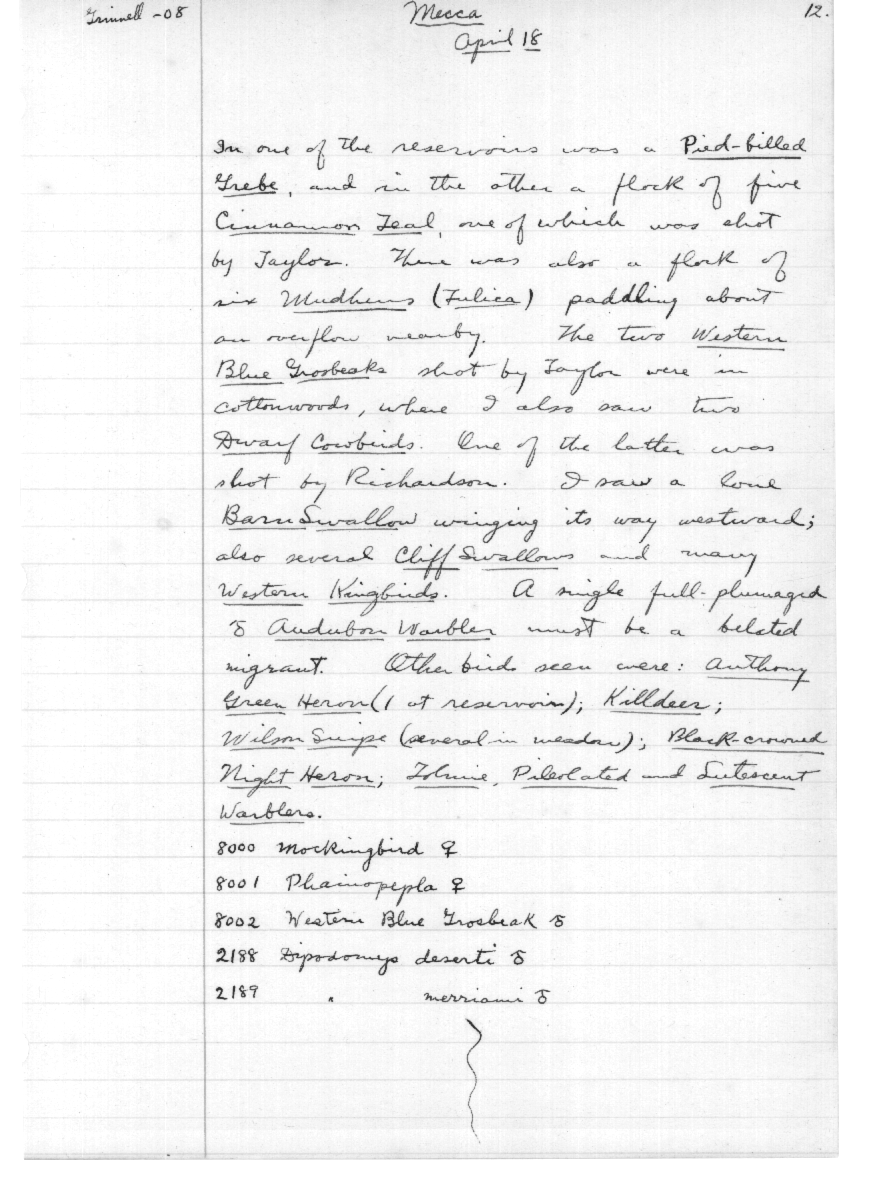 Grinnell -08
Mecca
12.
April 18
In one of the reservoirs was a Pied-billed
Grebe, and in the other a flock of five
Cinnamon Teal, one of which was shot
by Taylor. There was also a flock of
six Mudhens (Fulica) paddling about
an overflow nearby. The two Western
Blue Grosbeaks shot by Taylor were in
cottonwoods, where I also saw two
Dwarf Cowbirds. One of the latter was
shot by Richardson. I saw a lone
Barn Swallow winging its way westward;
also several Cliff Swallows and many
Western Kingbirds. A single full-plumaged
♂ Audubon Warbler must be a belated
migrant. Other birds seen were: Anthony
Green Heron (1 at reservoirs); Killdeer;
Wilson Snipe (several in meadow); Black-crowned
Night Heron; Tolmie, Pileolated and Lutescent
Warblers.
8000 Mockingbird ♀
8001 Phainopepla ♀
8002 Western Blue Grosbeak ♂
2188 Dipodomys deserti ♂
2189 " merriami ♂